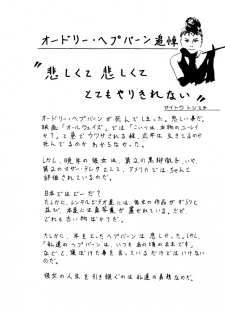 オードリー・ヘプバーン追悼
"悲しくて 悲しくて
とてもやりきれない"
サイトウトシミチ
オードリー・ヘプバーンが死んでしまった。悲しい事だ。
映画「オールウェイズ」では「こいつは、本物のユーレイ
か?」と裏でウワサされる程、近年は、生きてるのか
死んでるのか わからなかった。
しかし、晩年の彼女は、第2の黒柳徹子、いや、
第2のマザー・テレサとして、アメリカでは
評価されているのだ。
日本ではどーか?
たしかに、レンタルビデオ屋には、彼女の作品がずらりと
並び、本屋には写真集が置かれている。が、
どれも古い物ばかりだ。
たしかに、年をとったヘプバーンは悲しかった。しかし
「私達のヘプバーンは、いつもあの頃のままです」
などと、寝ぼけた事を言っているだけではいけない
のだ。
彼女の人生を引き継ぐのは私達の義務なのだ。